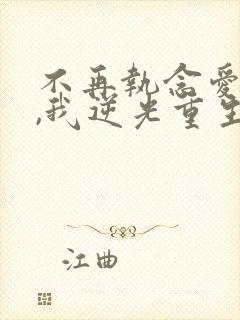 不再執念愛
,我逆光重生
江曲